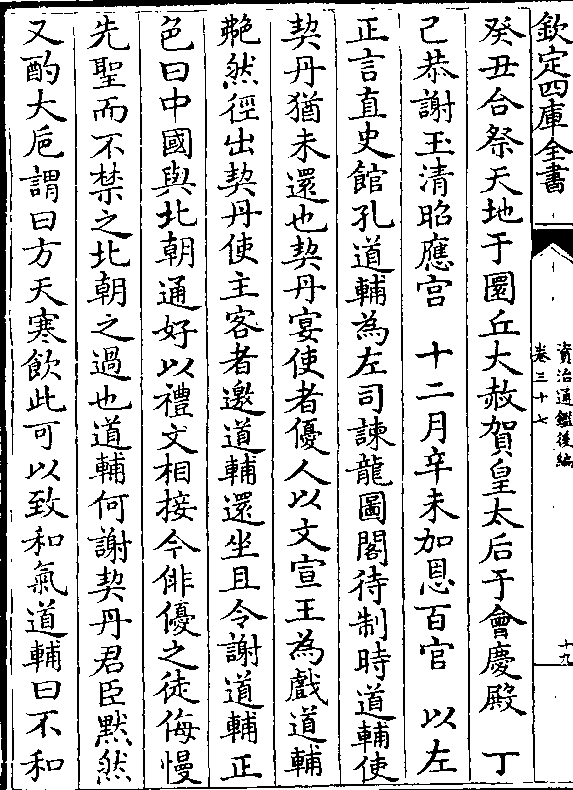 欽定四庫全書
資治通鑑後編
卷三十七
十九
癸丑合祭天地于圜丘大赦賀皇太后于會慶殿　丁
己恭謝玉清昭應宮　十二月辛未加恩百官　以左
正言直史館孔道輔為左司諫龍圖閣待制時道輔使
契丹猶未還也契丹宴使者優人以文宣王為戲道輔
艴然徑出契丹使主客者邀道輔還坐且令謝道輔正
色曰中國與北朝通好以禮文相接今俳優之徒侮慢
先聖而不禁之北朝之過也道輔何謝契丹君臣默然
又酌大巵謂曰方天寒飲此可以致和氣道輔曰不和